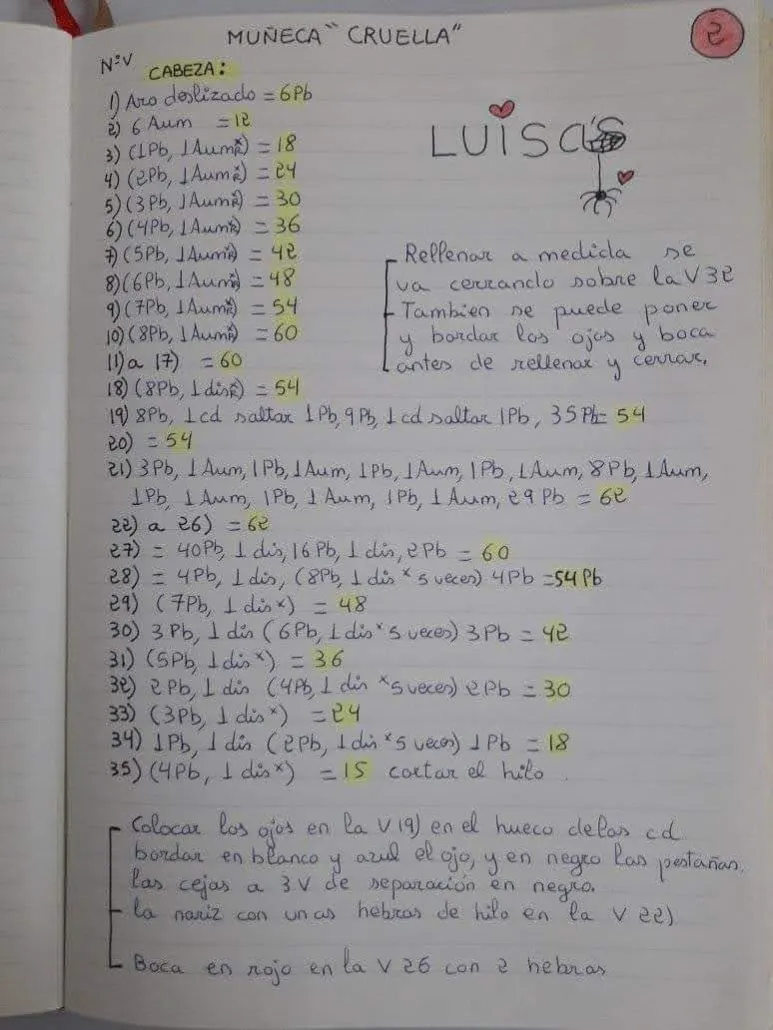 MUÑECA "CRUELLA"
2
NºV CABEZA:
1) Aro deslizado = 6Pb
2) 6 Aum = 12
3) (1Pb, 1Aum*) = 18
4) (2Pb, 1Aum*) = 24
5) (3Pb, 1Aum*) = 30
6) (4Pb, 1Aum*) = 36
7) (5Pb, 1Aum*) = 42
8) (6Pb, 1Aum*) = 48
9) (7Pb, 1Aum*) = 54
10) (8Pb, 1Aum*) = 60
11) a 17) = 60
18) (8Pb, 1dis*) = 54
19) 8Pb, 1cd saltar 1Pb, 9Pb, 1cd saltar 1Pb, 35Pb = 54
20) = 54
21) 3Pb, 1Aum, 1Pb, 1Aum, 1Pb, 1Aum, 1Pb, 1Aum, 8Pb, 1Aum,
1Pb, 1Aum, 1Pb, 1Aum, 1Pb, 1Aum, 29Pb = 62
22) a 26) = 62
27) = 40Pb, 1 dis, 16Pb, 1 dis, 2Pb = 60
28) = 4Pb, 1 dis, (8Pb, 1 dis * 5 veces) 4Pb = 54Pb
29) (7Pb, 1 dis*) = 48
30) 3Pb, 1 dis (6Pb, 1 dis* 5 veces) 3Pb = 42
31) (5Pb, 1 dis*) = 36
32) 2Pb, 1 dis (4Pb, 1 dis *5 veces) 2Pb = 30
33) (3Pb, 1 dis*) = 24
34) 1Pb, 1 dis (2Pb, 1 dis *5 veces) 1Pb = 18
35) (4Pb, 1 dis*) = 15 cortar el hilo.
LUISA'S
Rellenar a medida se
va cerrando sobre la V32
Tambien se puede poner
y bordar los ojos y boca
antes de rellenar y cerrar.
Colocar los ojos en la V19) en el hueco de las cd
bordar en blanco y azul el ojo, y en negro las pestañas.
las cejas a 3V de separación en negro.
la nariz con unas hebras de hilo en la V 22)
Boca en rojo en la V 26 con 2 hebras